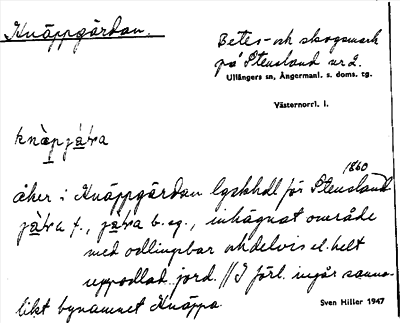 Knäppgärdan.
Betes- och skogsmark
på Stensland nr 2.
Ullångers sn, Ångermanl. s. doms. tg.
Västernorrl. l.
knäpjàra
åker i Knäppgärdan lgskhdl för Stensland 1860
jàra f., jàra b. sg., inhägnat område
med odlingsbar och delvis el. helt
uppodlad jord. // I förl. ingår sanno-
likt bynamnet Knäppa.
Sven Hiller 1947